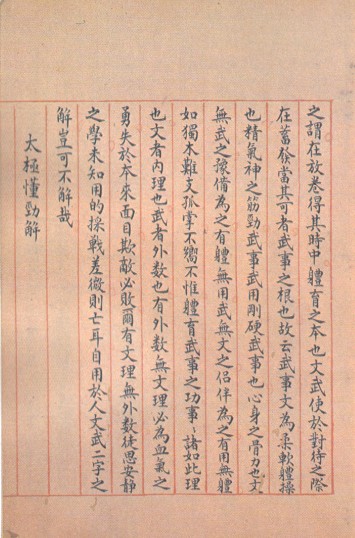 之謂在放卷得其時中體育之本也文武使於對待之際
在蓄發當其可者武事之根也故云武事文為柔軟體操
也精氣神之筋勁武事武用剛硬武事也心身之骨力也文
無武之豫備為之有體無用武無文之侶伴為之有用無體
如獨木難支孤掌不響不惟體育武事之功事〻諸如此理
也文者內理也武者外數也有外數無文理必為血氣之
勇失於本來面目欺敵必敗爾有文理無外數徒思安靜
之學未知用的採戰差微則亡耳自用於人文武二字之
解豈可不解哉
太極懂勁解